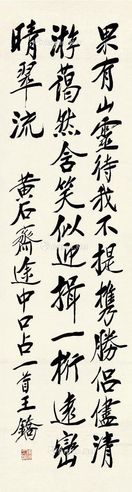 果有山靈待我不提携勝侶儘清
游藹然含笑似迎攝一桁遠巒
晴翠流
黄石齋途中口占一首王鐍